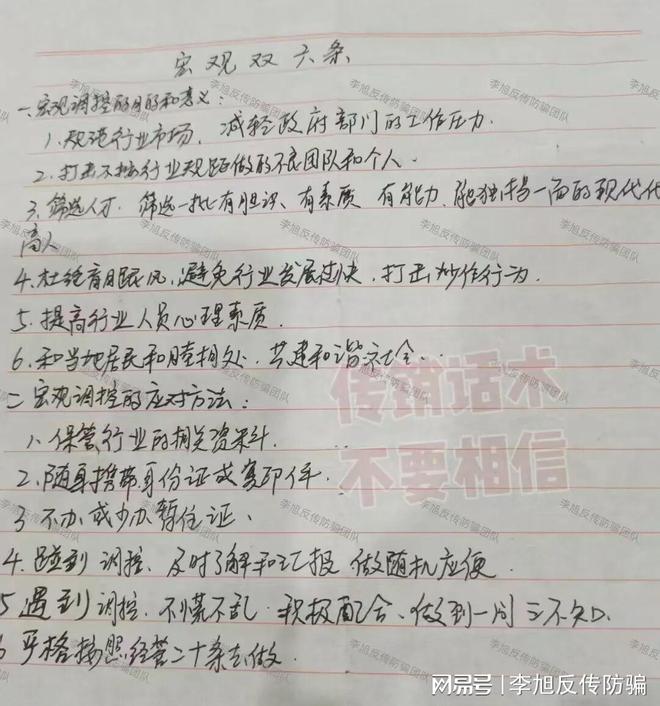 宏观双六条
一、宏观调控的目的和意义：
1、规范行业市场，减轻政府部门的工作压力.
2.打击不按行业规距做的不良团队和个人.
3.筛选人才.筛选一批有胆识、有素质 有能力.能独挡一面的现代化
高人
4.杜绝盲目跟风,避免行业发展过快.打击炒作行为.
5.提高行业人员心理素质.
6.和当地居民和睦相处.共建和谐社会.
二.宏观调控的应对方法：
1、保管行业的相关资料.
2.随身携带身份证或复印件.
3 不办或少办暂住证、
4.碰到调控、及时了解和汇报 做随机应便.
5 遇到调控.不慌不乱.积极配合、做到一问三不知.
6 严格按照经营二十条去做.
传销话术
不要相信
李旭反传防骗团队
网易号 | 李旭反传防骗